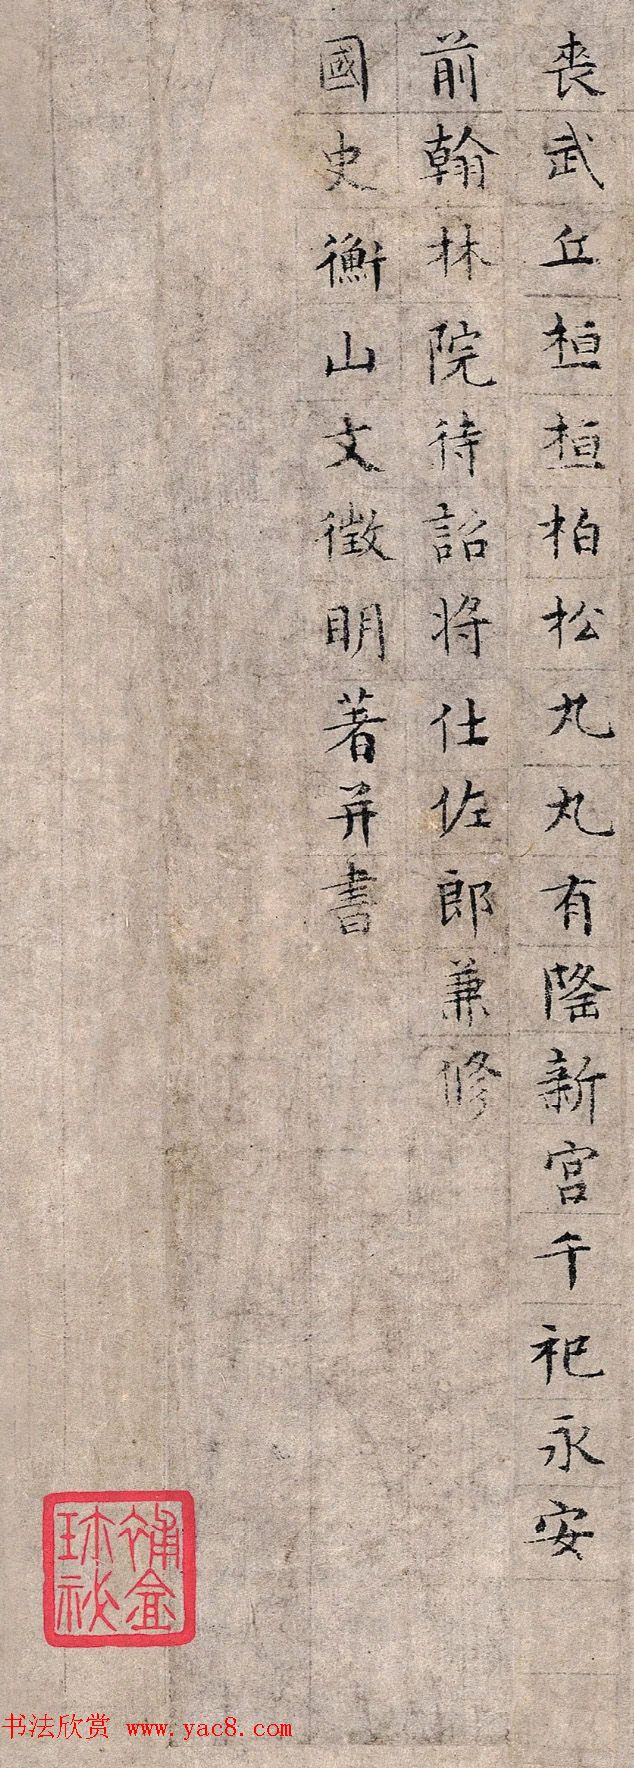 丧武丘桓桓柏松丸丸有隆新宫千祀永安
前翰林院待詔将仕佐郎兼修
國史衡山文徵明著并書
书法欣赏 www.yac8.com